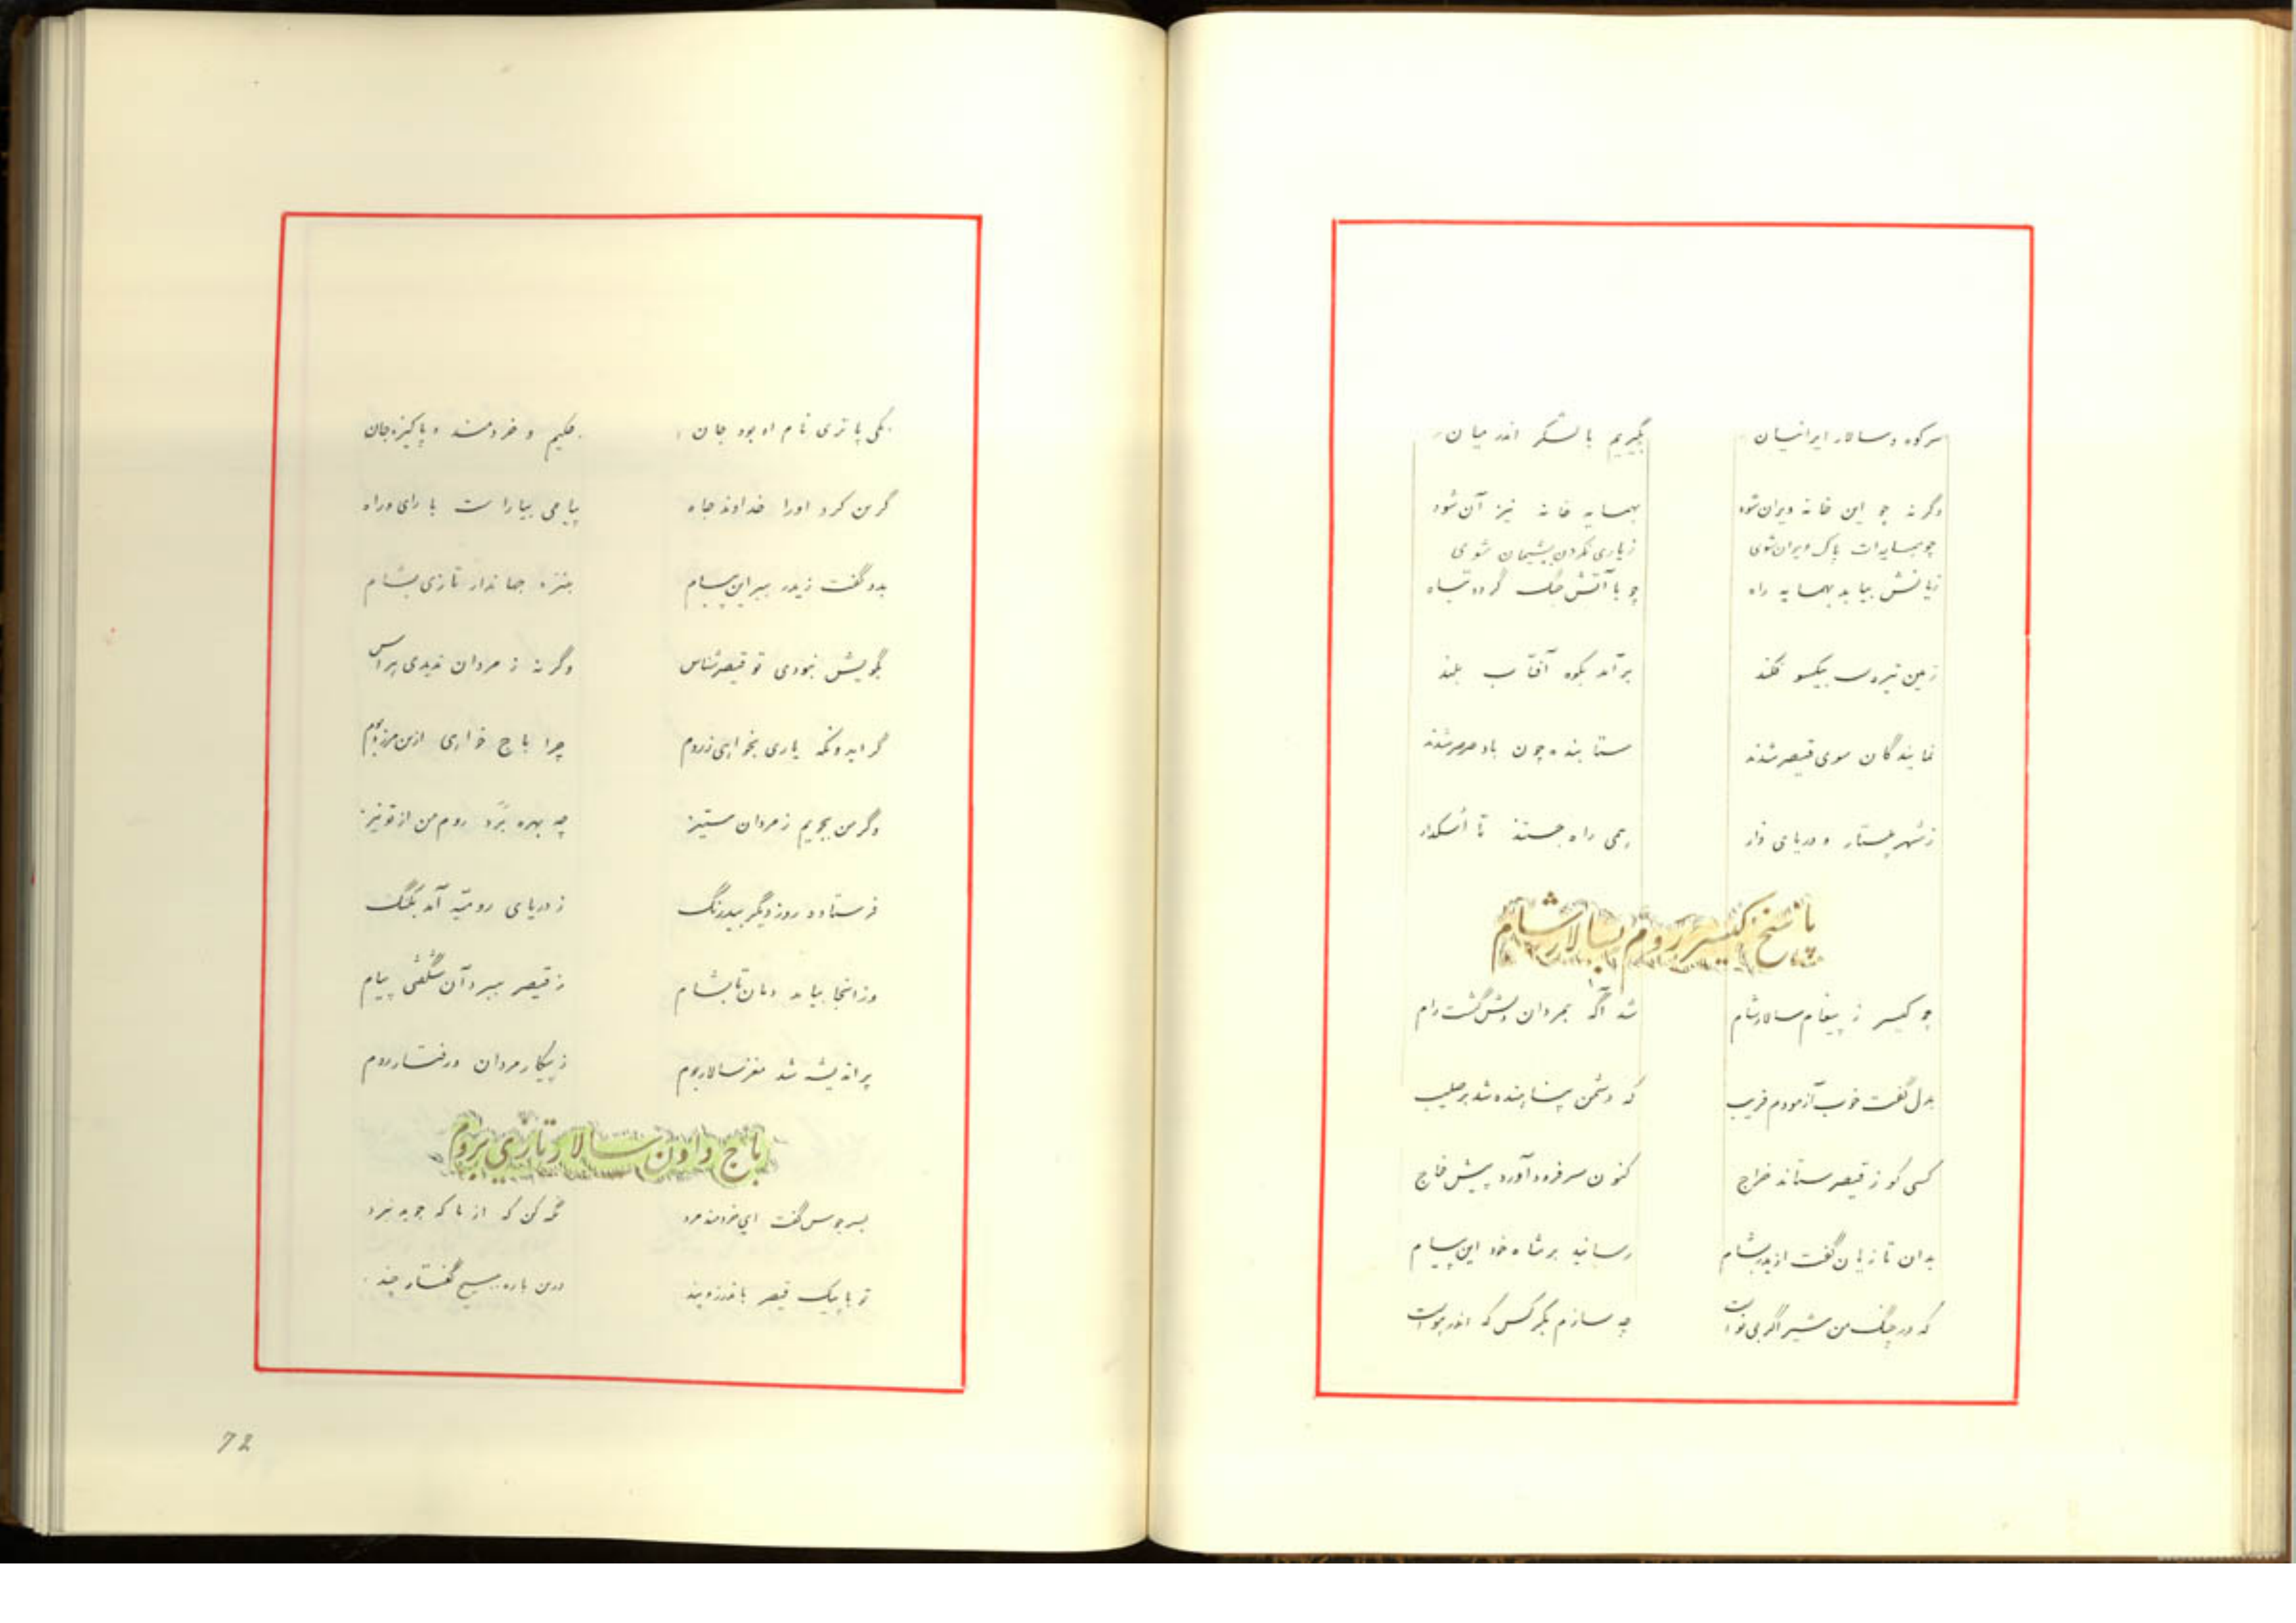 سرکوه و سالار ایرانیان بگیریم با لشکر اندر میان
وگرنه چو این خانه ویران شود بهمسایه خانه نیز آن شود
چو همسایه‌ات پاک ویران شوی زیاری نکردن پشیمان شوی
زیانش بیابد بهمسایه راه چو با آتش جنگ گردد تباه
زمین تیره‌شب بیکسو فکند برآمد بکوه آفتاب بلند
نمایندگان سوی قیصر شدند ستابنده چون باد صرصر شدند
زشهر و دریای همی راه جستند تا اسکدار
پاسخ کیسر روم بسالار شام
چو کیسر ز پیغام سالار شام شد آگه بمردان دلش گشت رام
بدل گفت خوب آزمودم فریب که دشمن پناهنده شد بر صلیب
کسی کو ز قیصر ستاند خراج کنون سر فرود آورد پیش خاج
بدان تازیان گفت ازیدر بشام رسانید بر شاه خود این پیام
که در چنگ من شیر اگر بی نواست چه سازم بکرکس که اندر هواست
یکی پاتری نام او بود جان حکیم و خردمند و پاکیزه‌جان
گزین کرد اورا خداوند جاه پیامی بیاراست با رای و راه
بدو گفت زیدر ببر این پیام بنزد جهاندار تازی بشام
بگویش نبودی تو قیصرشناس وگرنه ز مردان ندیدی هراس
گر ایدونکه یاری بخواهی زروم چرا باج خواهی ازین مرزبوم
وگر من بجویم زمردان ستیز چه بهره برد روم من از تو نیز
فرستاده روز دیگر بیدرنگ ز دریای رومیه آمد بگنگ
وزانجا بیامد دمان تا بشام ز قیصر ببرد آن شگفتی پیام
پراندیشه شد مغز سالار بوم ز پیکار مردان و رفتار روم
باج دادن سالار تازی بروم
بسرجوس گفت ای خردمند مرد نگه کن که از ما که جوید نبرد
تو با پیک قیصر باندرز و پند درین باره بسیج گفتار چند
72